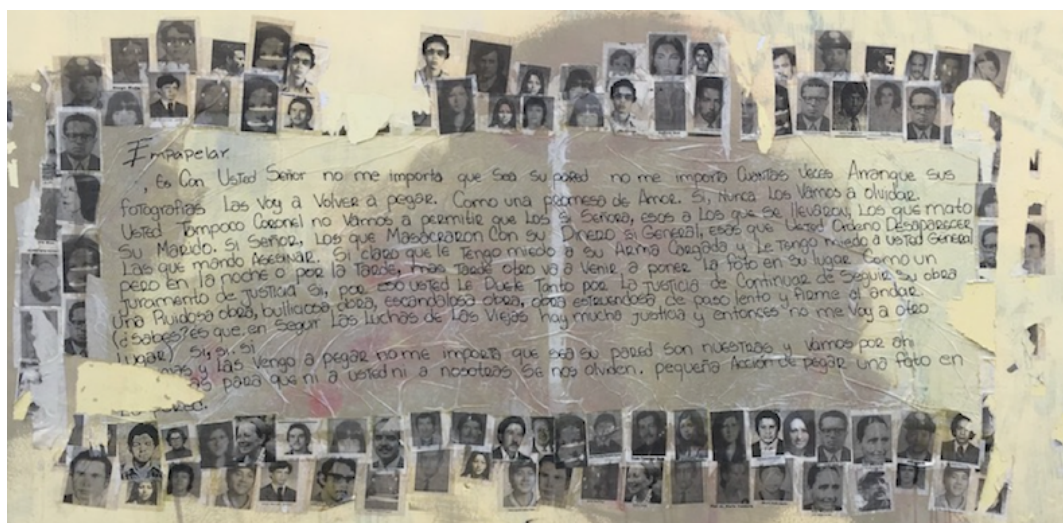 Empapelar
, Es Con Usted Señor no me importa que sea su pared no me importa Cuantas veces Arranque sus
fotografías Las voy a Volver a pegar. Como una promesa de Amor. Si, Nunca Los Vamos a olvidar.
Usted Tampoco Coronel no Vamos a permitir que Los si Señora, esos a Los que se llevaron, Los que mato
Su Marido. Si Señor, Los que Masacraron Con su Dinero si General, esas que Usted Ordeno Desaparecer,
Las que mando Asesinar. Si claro que le Tengo miedo a su Arma Cargada y Le Tengo miedo a usted General
pero en la noche o por la Tarde, mas tarde otro va a venir a poner la foto en su lugar Como un
juramento de justicia Si, por eso usted Le Duele Tanto por La justicia de Continuar de Seguir su obra
una Ruidosa obra, bulliciosa obra, escandalosa obra, obra estruendosa, de paso lento y firme al andar.
(¿Sabes? es que, en Seguir Las Luchas de Las Viejas hay mucha justicia y entonces no me voy a otro
Lugar) Si, si, si
y Las Vengo a pegar no me importa que sea su pared son nuestras y vamos por ahi
para que ni a usted ni a nosotras se nos olviden. pequeña Acción de pegar una foto en
pared.